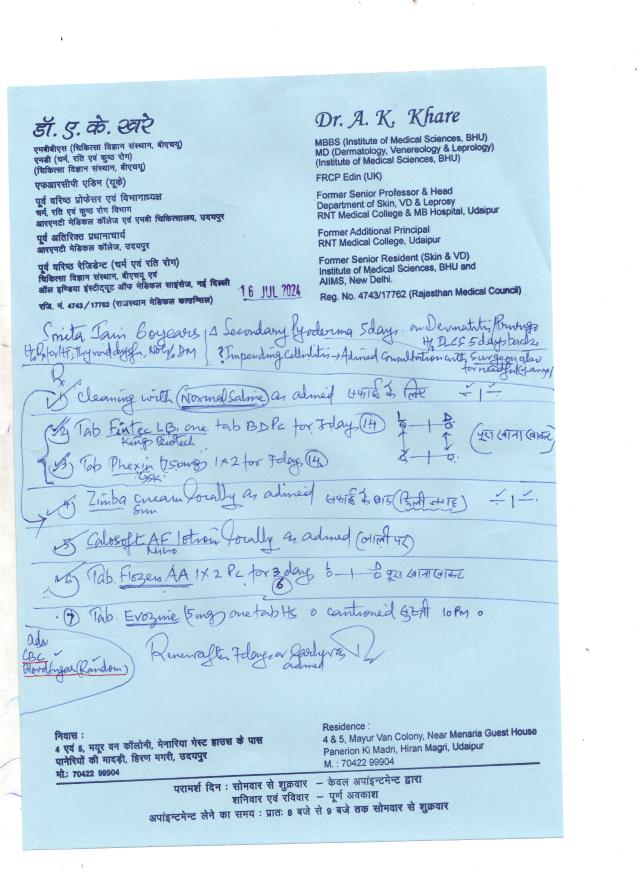 डॉ. ए. के. खरे
एमबीबीएस (चिकित्सा विज्ञान संस्थान, बीएचयू)
एमडी (चर्म, रति एवं कुष्ठ रोग)
(चिकित्सा विज्ञान संस्थान, बीएचयू)
एफआरसीपी एडिन (यूके)
पूर्व वरिष्ठ प्रोफेसर एवं विभागाध्यक्ष
चर्म, रति एवं कुष्ठ रोग विभाग
आरएनटी मेडिकल कॉलेज एवं एमबी चिकित्सालय, उदयपुर
पूर्व अतिरिक्त प्रधानाचार्य
आरएनटी मेडिकल कॉलेज, उदयपुर
पूर्व वरिष्ठ रेजिडेन्ट (चर्म एवं रति रोग)
चिकित्सा विज्ञान संस्थान, बीएचयू एवं
ऑल इण्डिया इंस्टीट्यूट ऑफ मेडिकल साइंसेज, नई दिल्ली
रजि. नं. 4743/17762 (राजस्थान मेडिकल काउन्सिल)
Dr. A. K. Khare
MBBS (Institute of Medical Sciences, BHU)
MD (Dermatology, Venereology & Leprology)
(Institute of Medical Sciences, BHU)
FRCP Edin (UK)
Former Senior Professor & Head
Department of Skin, VD & Leprosy
RNT Medical College & MB Hospital, Udaipur
Former Additional Principal
RNT Medical College, Udaipur
Former Senior Resident (Skin & VD)
Institute of Medical Sciences, BHU and
AIIMS, New Delhi.
Reg. No. 4743/17762 (Rajasthan Medical Council)
16 JUL 2024
Smita Jain 60years Δ Secondary Pyoderma 5days on Dermatitis
5days back
? Impending Cellulitis → Advised Consultation with Surgeon also
Rx
1) Cleaning with Normal Saline as advised सफाई के लिए
2) Tab LB one tab BD Pc for 7days 14
3) Tab Phexin (750mg) 1x2 for 7days 14
4) Zimba cream locally as advised सफाई के बाद
Sun
5) Calosoft AF lotion locally as advised (लाली पर)
Micro
6) Tab. Flozen AA 1x2 Pc for 3 days खाना खाकर
6
7) Tab Evozine (5mg) one tab HS 10 PM
Adv
CBC
Blood Sugar (Random)
Review after 7days or Early as
advised
निवास :
4 एवं 5, मयूर वन कॉलोनी, मेनारिया गेस्ट हाउस के पास
पानेरियों की मादड़ी, हिरण मगरी, उदयपुर
मो.: 70422 99904
Residence :
4 & 5, Mayur Van Colony, Near Menaria Guest House
Panerion Ki Madri, Hiran Magri, Udaipur
M. : 70422 99904
परामर्श दिन : सोमवार से शुक्रवार – केवल अपांइन्टमेन्ट द्वारा
शनिवार एवं रविवार – पूर्ण अवकाश
अपांइन्टमेन्ट लेने का समय : प्रातः 8 बजे से 9 बजे तक सोमवार से शुक्रवार